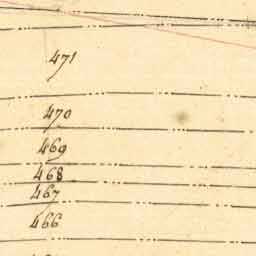 471
470
469
468
467
466